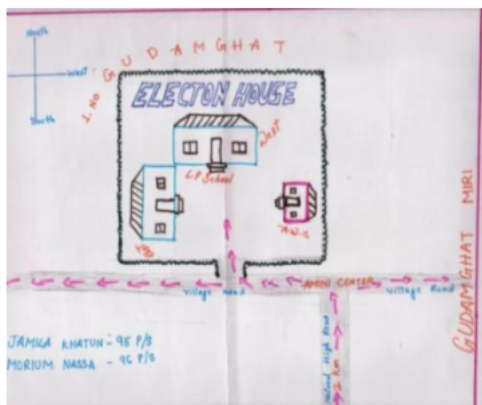 North
West
South
1. NO GUDAMGHAT
ELECTON HOUSE
West
L.P School
A.W.C
AMINI CENTER
Village Road
Village Road
National High Road
2 km
GUDAMGHAT MIRI
JAMILA KHATUN - 95 P/S
MORIUM NASSA - 96 P/S